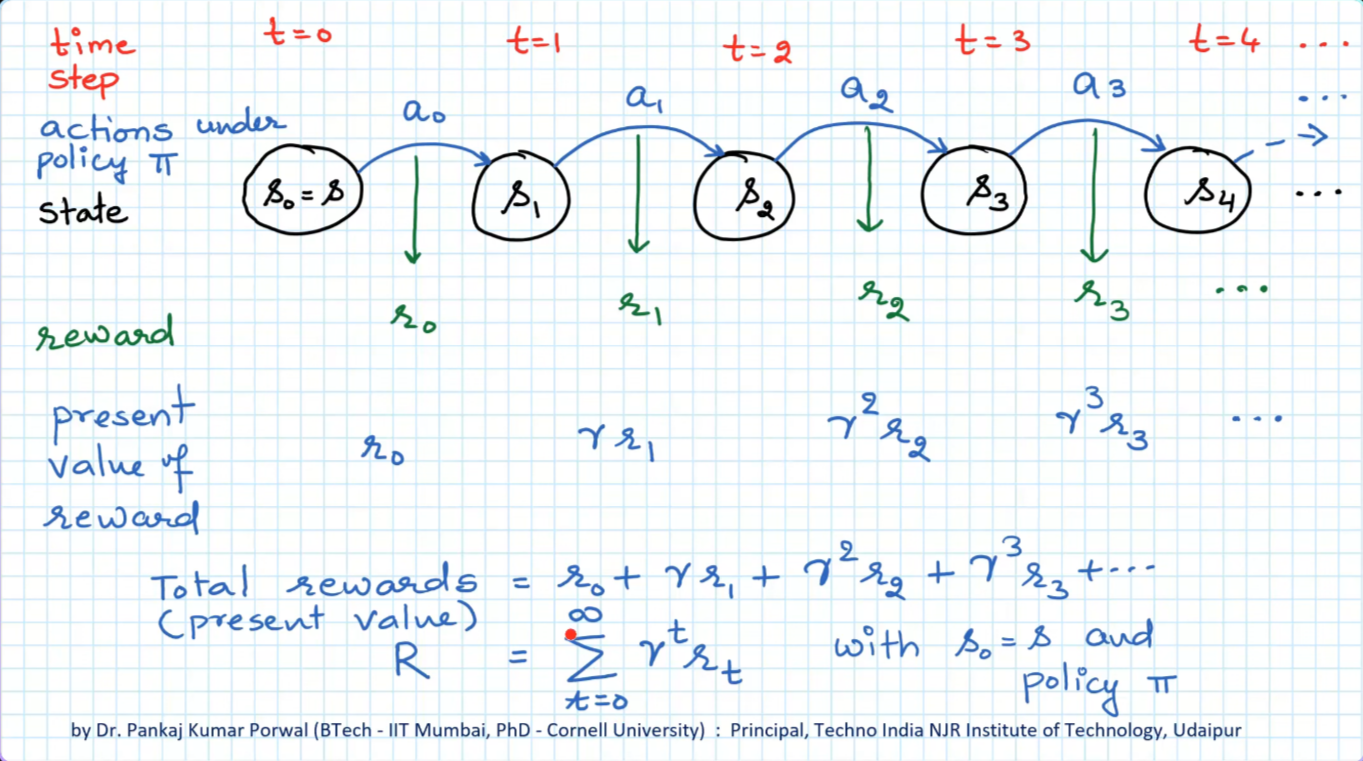 time step t=0 t=1 t=2 t=3 t=4 ...
actions under policy π a₀ a₁ a₂ a₃ ...
state s₀ = s s₁ s₂ s₃ s₄ ...
reward r₀ r₁ r₂ r₃ ...
present value of reward r₀ γr₁ γ²r₂ γ³r₃ ...
Total rewards = r₀ + γr₁ + γ²r₂ + γ³r₃ + ...
(present value)
R = ∑_{t=0}^{∞} γᵗrₜ with s₀ = s and policy π
by Dr. Pankaj Kumar Porwal (BTech - IIT Mumbai, PhD - Cornell University) : Principal, Techno India NJR Institute of Technology, Udaipur